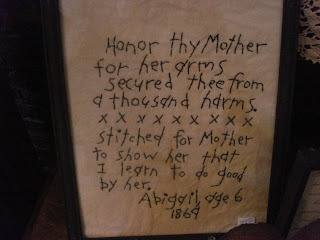 Honor thy Mother
for her arms
secured thee from
a thousand harms.
x x x x x x x x x
stitched for Mother
to show her that
I learn to do good
by her.
Abigail, age 6
1869